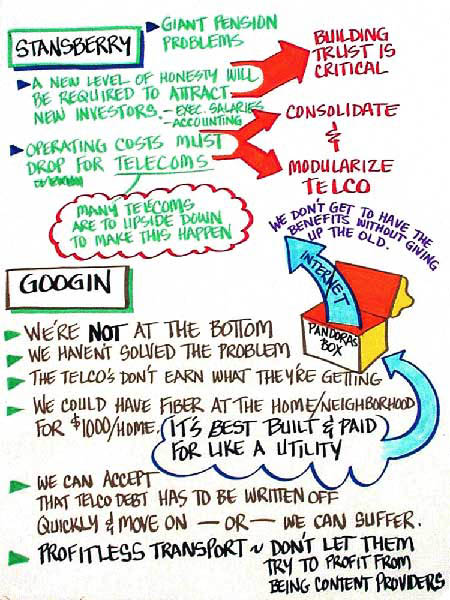 STANSBERRY
GIANT PENSION
PROBLEMS
A NEW LEVEL OF HONESTY WILL
BE REQUIRED TO ATTRACT
NEW INVESTORS. – EXEC. SALARIES
– ACCOUNTING
BUILDING
TRUST IS
CRITICAL
OPERATING COSTS MUST
DROP FOR TELECOMS
CONSOLIDATE
&
MODULARIZE
TELCO
MANY TELECOMS
ARE TO UPSIDE DOWN
TO MAKE THIS HAPPEN
WE DON'T GET TO HAVE THE
BENEFITS WITHOUT GIVING
UP THE OLD.
INTERNET
PANDORAS
BOX
GOOGIN
WE'RE NOT AT THE BOTTOM
WE HAVEN'T SOLVED THE PROBLEM
THE TELCO'S DON'T EARN WHAT THEY'RE GETTING
WE COULD HAVE FIBER AT THE HOME/NEIGHBORHOOD
FOR $1000/HOME.
IT'S BEST BUILT & PAID
FOR LIKE A UTILITY
WE CAN ACCEPT
THAT TELCO DEBT HAS TO BE WRITTEN OFF
QUICKLY & MOVE ON — OR — WE CAN SUFFER.
PROFITLESS TRANSPORT ~ DON'T LET THEM
TRY TO PROFIT FROM
BEING CONTENT PROVIDERS